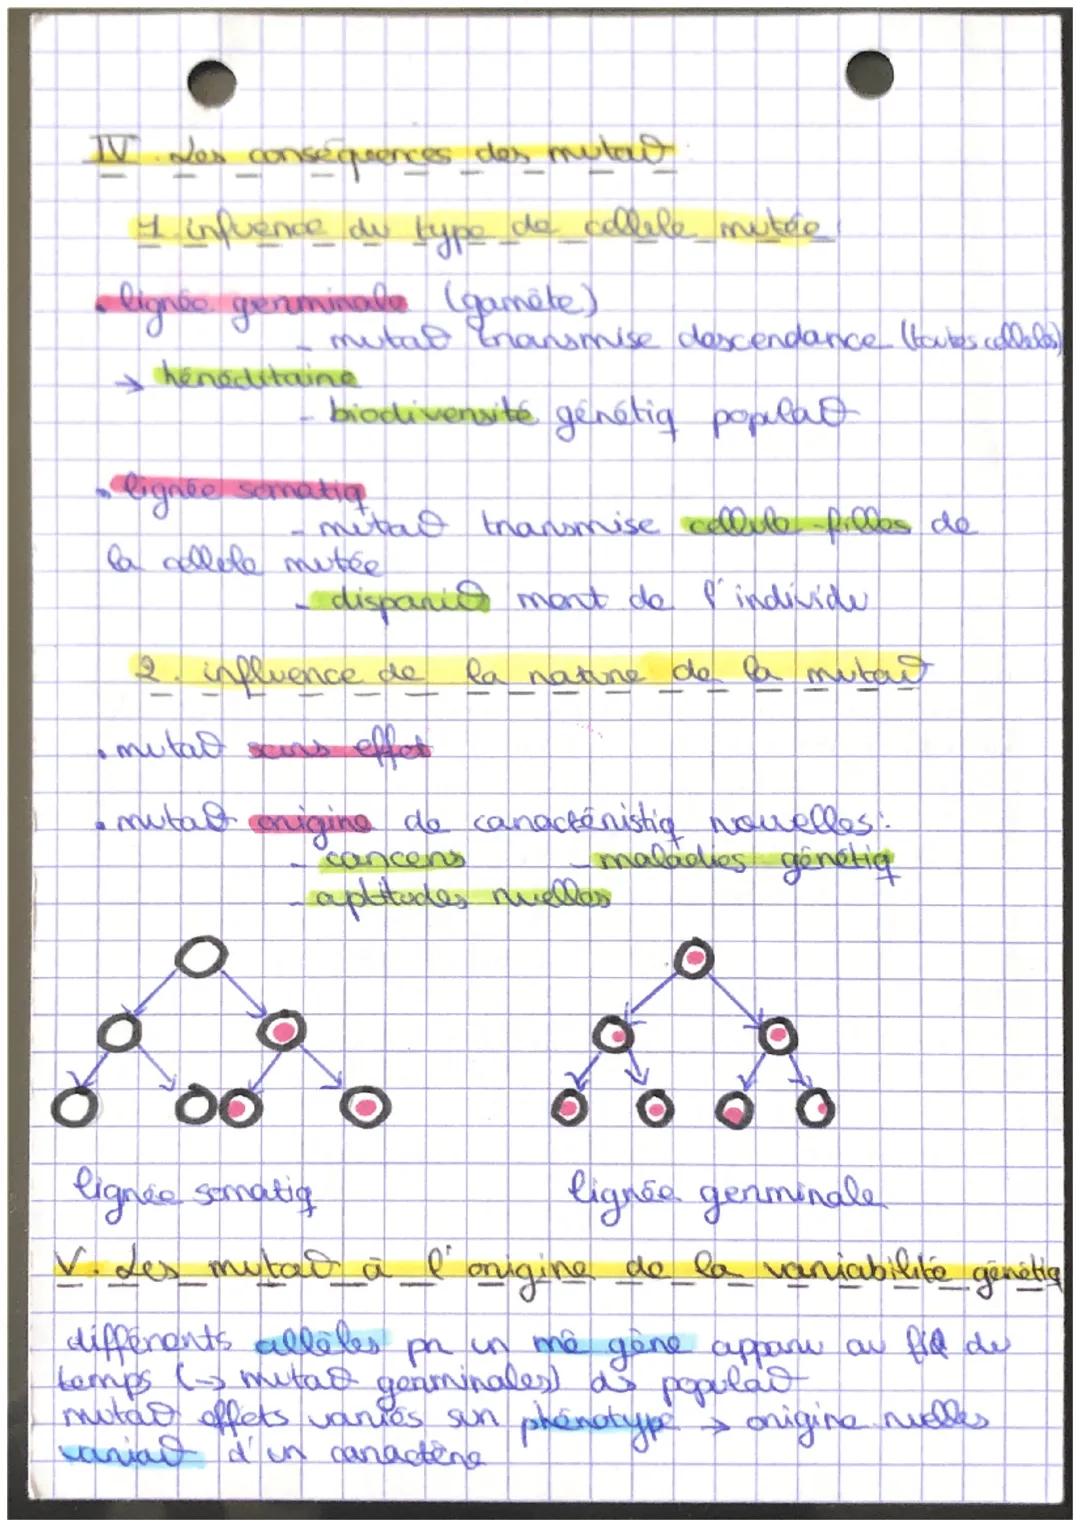 IV. Les conséquences des mutat°
1. influence du type de cellule mutée
• lignée germinale (gamète)
- mutat° transmise descendance (toutes cellules)
→ héréditaire
- biodiversité génétiq populat°
• lignée somatiq
- mutat° transmise cellule-filles de
la cellule mutée
- disparit° mort de l'individu
2. influence de la nature de la mutat°
• mutat° sans effet
• mutat° origine de caractéristiq nouvelles :
- cancers - maladies génétiq
- aptitudes nuelles
lignée somatiq lignée germinale
V. Les mutat° à l'origine de la variabilité génétiq
différents allèles pr un mê gène apparu au fil du
temps (→ mutat° germinales) ds populat°
mutat° effets variés sur phénotype → origine nuelles
variat° d'un caractère